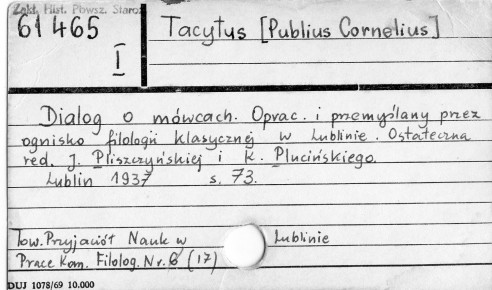 Zakł. Hist. Powsz. Staroż
61465
I
Tacytus [Publius Cornelius]
Dialog o mówcach. Oprac. i przemyślany przez
ognisko filologii klasycznej w Lublinie. Ostateczna
red. J. Pliszczyńskiej i K. Plucińskiego.
Lublin 1937 s. 73.
Tow. Przyjaciół Nauk w Lublinie
Prace Kom. Filolog. Nr. 6 (17)
DUJ 1078/69 10.000